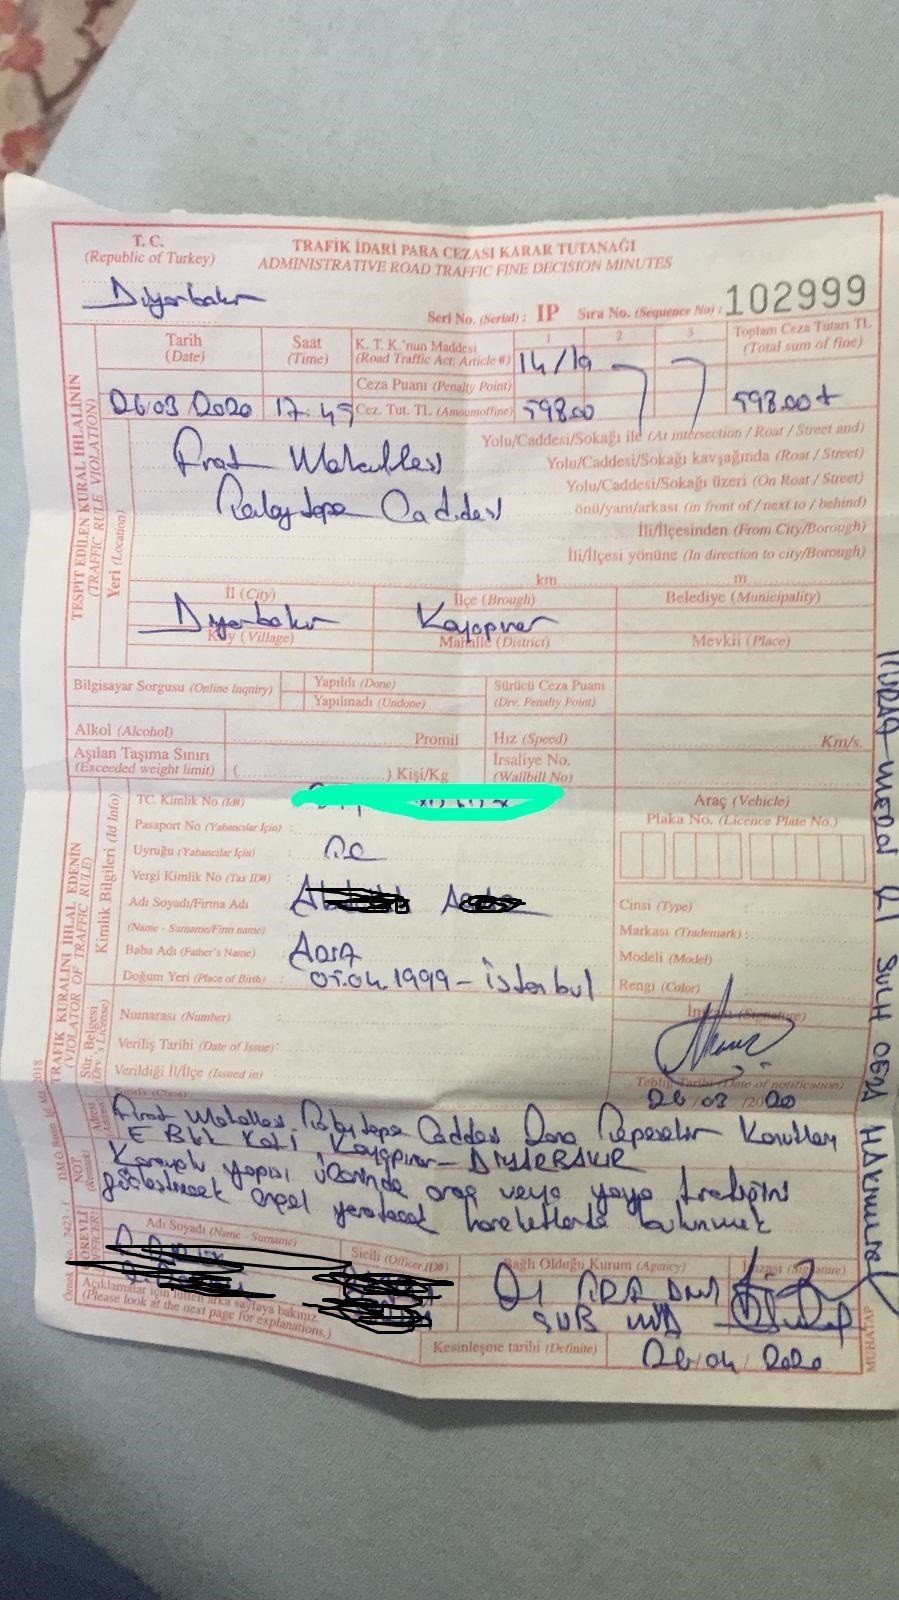 T. C.
(Republic of Turkey)
TRAFİK İDARİ PARA CEZASI KARAR TUTANAĞI
ADMINISTRATIVE ROAD TRAFFIC FINE DECISION MINUTES
Diyarbakır
Seri No. (Serial) : IP Sıra No. (Sequence No) : 102999
TESPİT EDİLEN KURAL İHLALİNİN
(TRAFFIC RULE VIOLATION)
Tarih
(Date)
Saat
(Time)
K. T. K.'nun Maddesi
(Road Traffic Act; Article #)
1 2 3
14/19
Toplam Ceza Tutarı TL
(Total sum of fine)
Ceza Puanı (Penalty Point)
26 03 2020 17:45 Cez. Tut. TL (Amountoffine) 598.00 598.00
Yeri (Location)
Fırat Mahallesi
Caddesi
Yolu/Caddesi/Sokağı ile (At intersection / Roat / Street and)
Yolu/Caddesi/Sokağı kavşağında (Roat / Street)
Yolu/Caddesi/Sokağı üzeri (On Roat / Street)
önü/yanı/arkası (in front of / next to / behind)
İli/İlçesinden (From City/Borough)
İli/İlçesi yönüne (In direction to city/Borough)
km m
İl (City) İlçe (Brough) Belediye (Municipality)
Diyarbakır Kayapınar
Köy (Village) Mahalle (District) Mevkii (Place)
Bilgisayar Sorgusu (Online Inquiry)
Yapıldı (Done)
Yapılmadı (Undone)
Sürücü Ceza Puanı
(Drv. Penalty Point)
Alkol (Alcohol) Promil Hız (Speed) Km/s.
Aşılan Taşıma Sınırı
(Exceeded weight limit) ( ) Kişi/Kg
İrsaliye No.
(Wallbill No)
TRAFİK KURALINI İHLAL EDENİN
(VIOLATOR OF TRAFFIC RULE)
Kimlik Bilgileri (Id Info)
TC. Kimlik No (Id#)
Pasaport No (Yabancılar İçin) :
Uyruğu (Yabancılar İçin) :
Vergi Kimlik No (Tax ID#) :
Adı Soyadı/Firma Adı :
(Name - Surname/Firm name)
Baba Adı (Father's Name) :
Doğum Yeri (Place of Birth) : 1999 - İstanbul
Araç (Vehicle)
Plaka No. (Licence Plate No.)
Cinsi (Type) :
Markası (Trademark) :
Modeli (Model) :
Rengi (Color) :
Sür. Belgesi
(Drv.'s License)
Numarası (Number) :
Veriliş Tarihi (Date of Issue) :
Verildiği İl/İlçe (Issued in) :
İmzası (Signature)
Tebliğ Tarihi (Date of notification)
26/03/2020
Fırat Mahallesi Caddesi
E Blok Kat:1 Kayapınar - DİYARBAKIR
NOT
(Remark)
Karayolu yapısı üzerinde araç veya yaya trafiğini
güçleştirecek engel yaratacak hareketlerde bulunmak
GÖREVLİ
(OFFICER)
Adı Soyadı (Name - Surname) Sicili (Officer ID#) Bağlı Olduğu Kurum (Agency) İmzası (Signature)
Açıklamalar için lütfen arka sayfaya bakınız.
(Please look at the next page for explanations.)
Kesinleşme tarihi (Definite) 26/04/2020
MUHATAP
SULH CEZA HAKİMLİĞİ